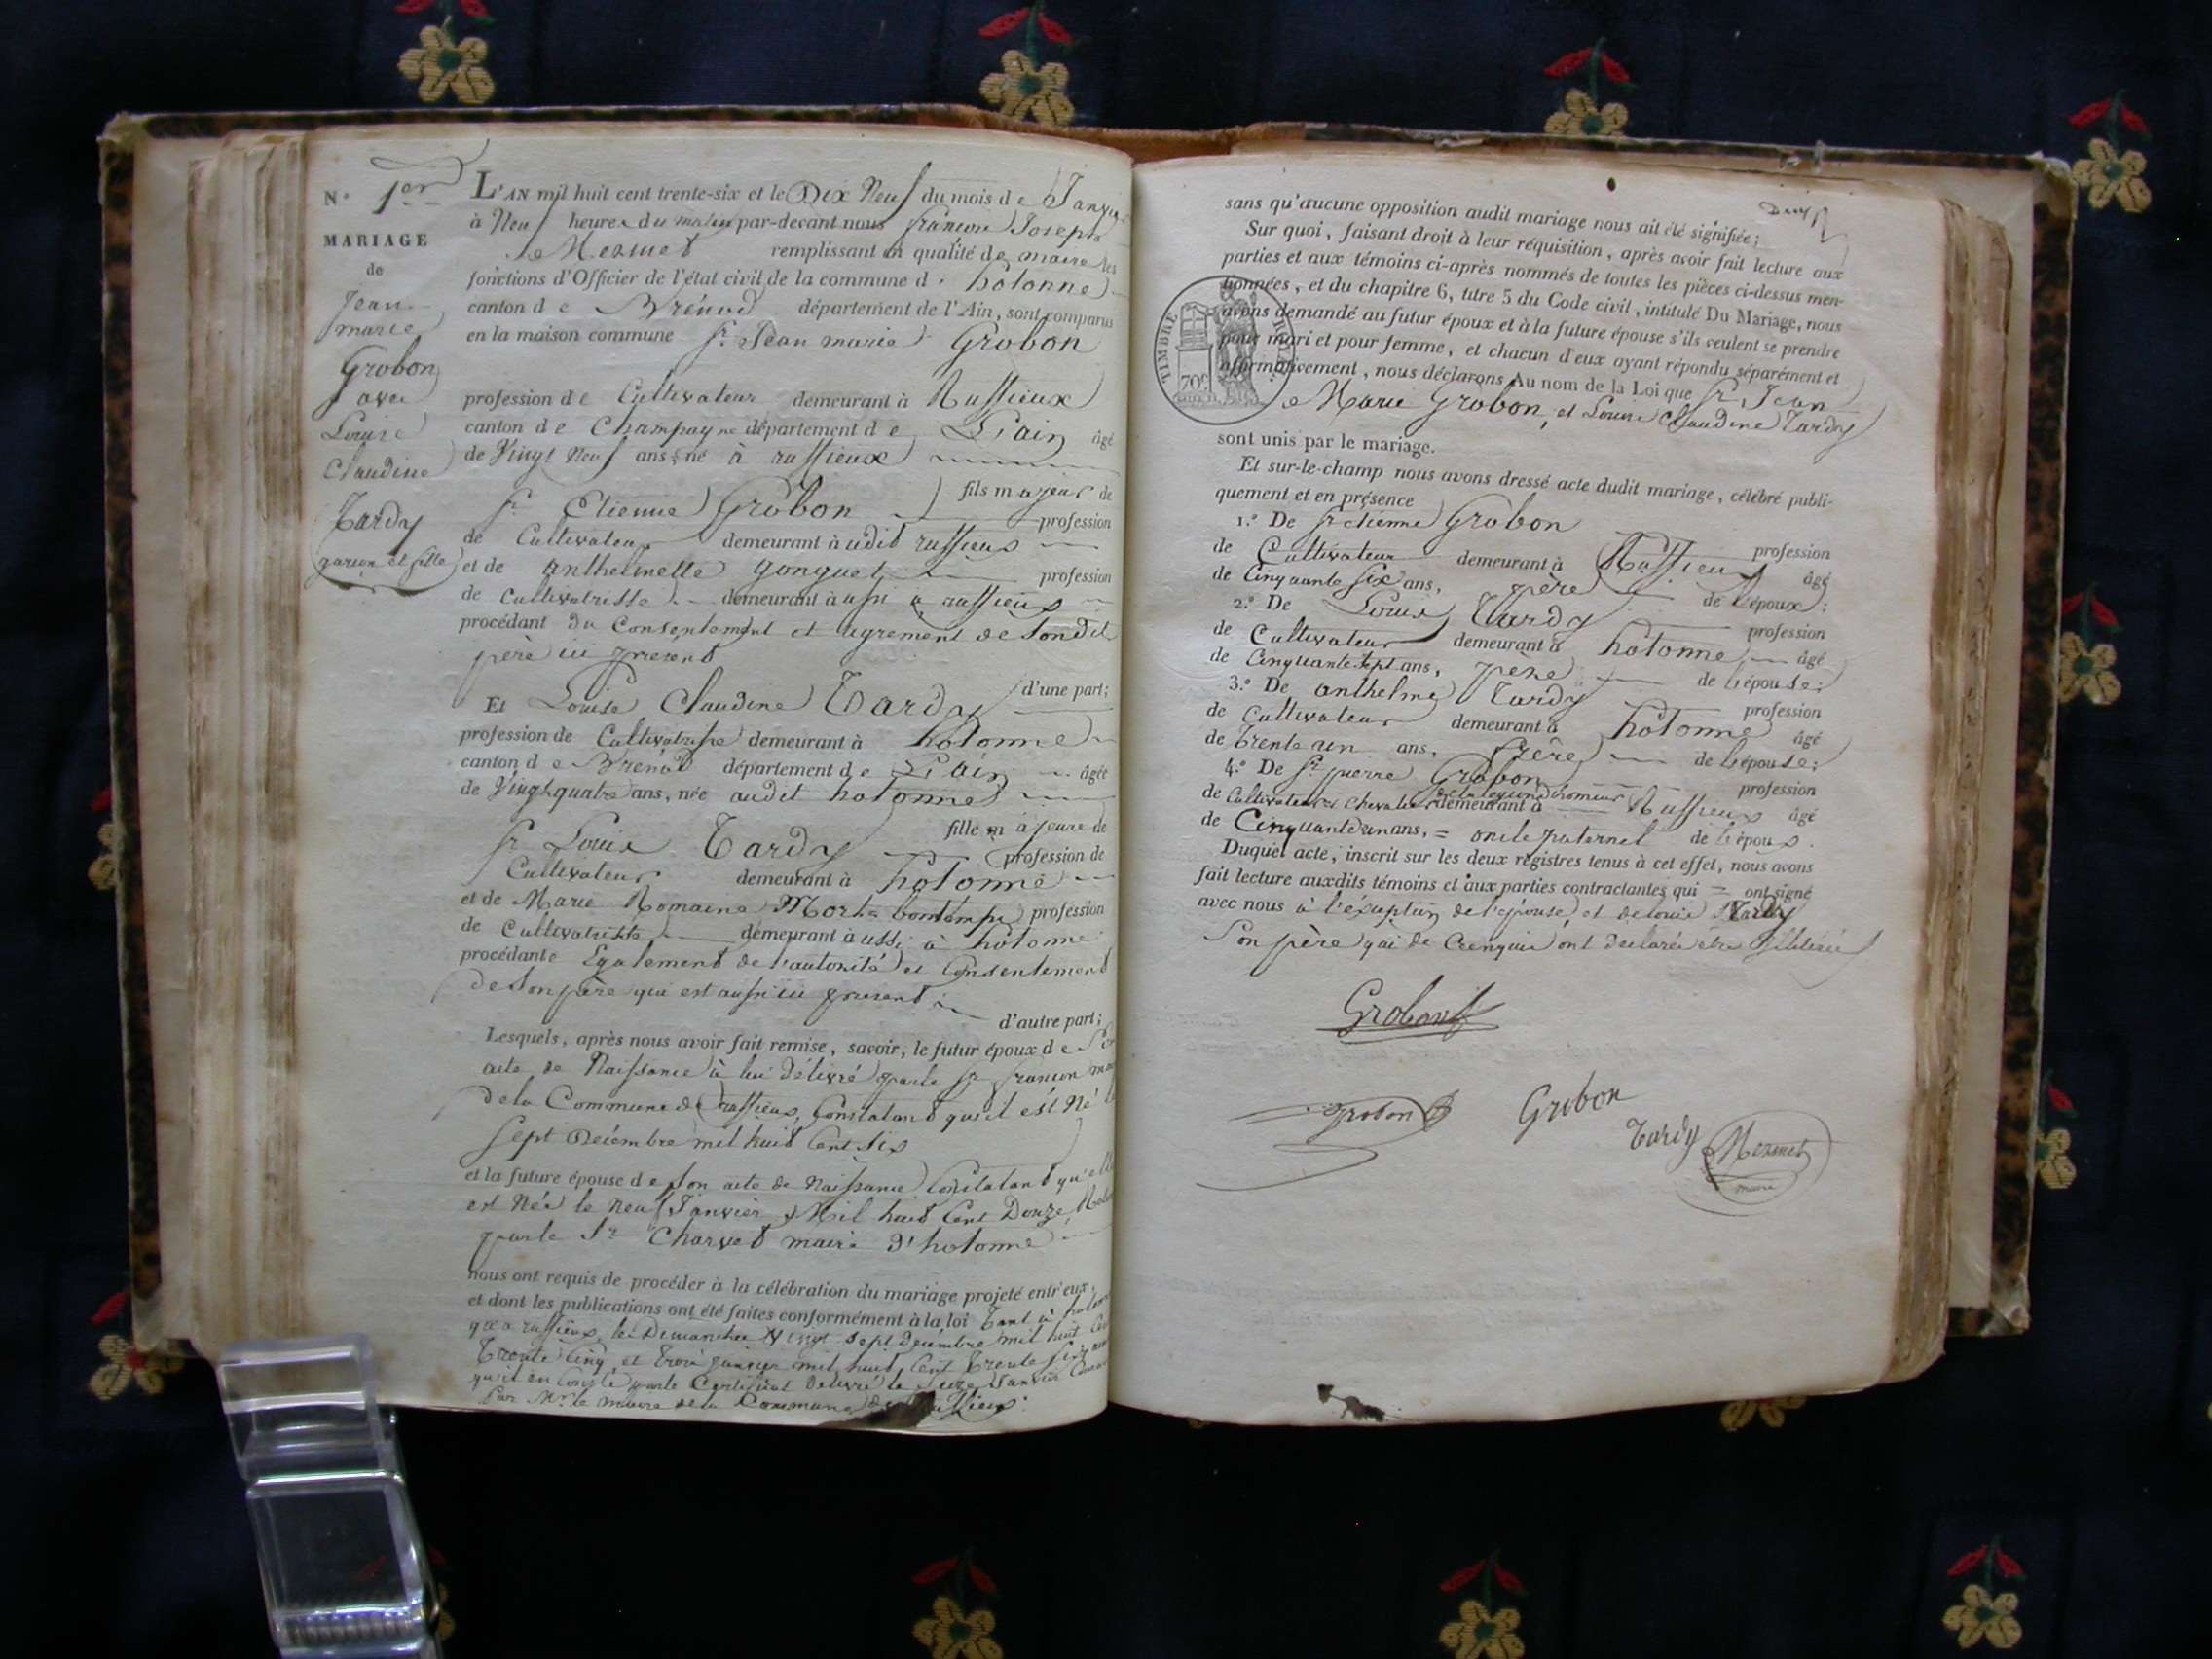 N.° 1er
MARIAGE
de
Jean
marie
Grobon
avec
Louise
Claudine
Tardy
garçon et fille
L'AN mil huit cent trente-six et le Dix Neuf du mois de Janvier
à Neuf heures du matin par-devant nous françois Joseph
Mermet remplissant en qualité de maire les
fonctions d'Officier de l'état civil de la commune d' hotonne
canton de Brénod département de l'Ain, sont comparus
en la maison commune Sr. Jean marie Grobon
profession de Cultivateur demeurant à Ruffieux
canton de Champagne département de L'ain âgé
de Vingt Neuf ans, né à ruffieux
fils majeur de
Sr. Etienne Grobon profession
de Cultivateur demeurant à udit ruffieux
et de anthelmette gonguet profession
de Cultivatrisse demeurant à ussi a ruffieux
procédant du Consentement et agrement de Sondit
père ici present
d'une part;
Et Louise Claudine Tardy
profession de Cultivatrisse demeurant à hotonne
canton de Brenod département de L'ain âgée
de Vingt quatre ans, née audit hotonne
fille majeure de
Sr Louis Tardy profession de
Cultivateur demeurant à hotonne
et de Marie Romaine Morte bontemps profession
de Cultivatrisse demeurant à ussi à hotonne
procédante Egalement de l'autorité et Consentement
de Son père qui est aussi ici present
d'autre part;
Lesquels, après nous avoir fait remise, savoir, le futur époux de Son
acte de Naissance à lui délivré par le Sr françon
de la Commune de ruffieux, Constatant qu'il est Né le
Sept Décembre mil huit Cent Six
et la future épouse de Son acte de Naissance Constatant qu'elle
est Née le neuf Janvier Mil huit Cent Douze
par le Sr Charvet maire d'hotonne
nous ont requis de procéder à la célébration du mariage projeté entr'eux,
et dont les publications ont été faites conformément à la loi Tant à hotonne
qu'a ruffieux, les Dimanches Vingt sept Décembre mil huit Cent
Trente Cinq et trois janvier mil huit Cent Trente Six
qu'il en Conste par le Certificat Delivré le Seize Janvier
Par Mr. le maire de la Commune de Ruffieux.
Deux
sans qu'aucune opposition audit mariage nous ait été signifiée;
Sur quoi, faisant droit à leur réquisition, après avoir fait lecture aux
parties et aux témoins ci-après nommés de toutes les pièces ci-dessus men-
tionnées, et du chapitre 6, titre 5 du Code civil, intitulé Du Mariage, nous
avons demandé au futur époux et à la future épouse s'ils veulent se prendre
pour mari et pour femme, et chacun d'eux ayant répondu séparément et
affirmativement, nous déclarons Au nom de la Loi que Sr. Jean
Marie Grobon, et Louise Claudine Tardy
TIMBRE ROYAL
70c
sont unis par le mariage.
Et sur-le-champ nous avons dressé acte dudit mariage, célébré publi-
quement et en présence
1.° De Sr etienne Grobon profession
de Cultivateur demeurant à Ruffieux âgé
de Cinquante Six ans, père de l'époux;
2.° De Louis Tardy profession
de Cultivateur demeurant à hotonne âgé
de Cinquante Sept ans, père de l'épouse;
3.° De anthelme Tardy profession
de Cultivateur demeurant à hotonne âgé
de Trente un ans, frère de l'épouse;
4.° De Sr pierre Grobon profession
de la legion d'honneur
de Cultivateur et chevalier demeurant à Ruffieux âgé
de Cinquante un ans, = oncle paternel de l'époux.
Duquel acte, inscrit sur les deux registres tenus à cet effet, nous avons
fait lecture auxdits témoins et aux parties contractantes qui = ont signé
avec nous à l'éxception de l'épouse et de louis Tardy
Son père qui de Ce enquis ont declarés être Illitérés
Grobon
grobon
Grobon
Tardy
Mermet
maire